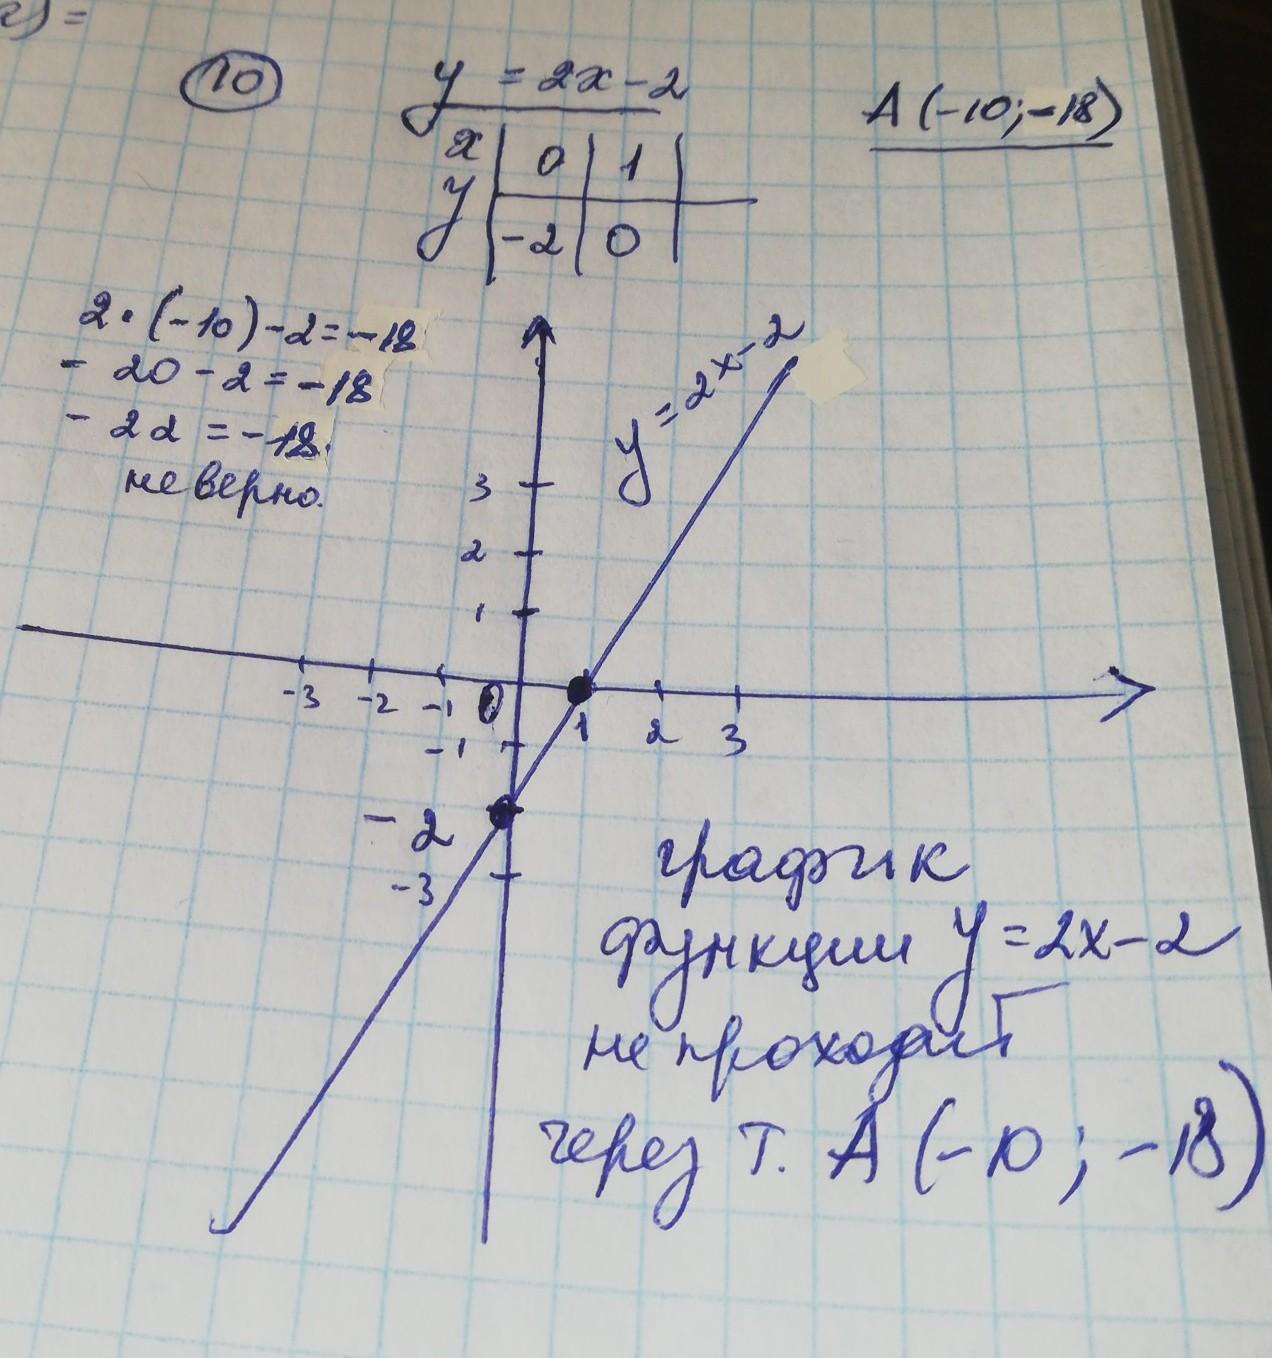 г) =
10
y = 2x - 2
A (-10; -18)
x 0 1
y -2 0
2 · (-10) - 2 = -18
- 20 - 2 = -18
- 22 = -18.
неверно.
y = 2x - 2
3
2
1
-3 -2 -1 0 1 2 3
-1
-2
-3
график
функции y = 2x - 2
не проходит
через т. A (-10; -18)